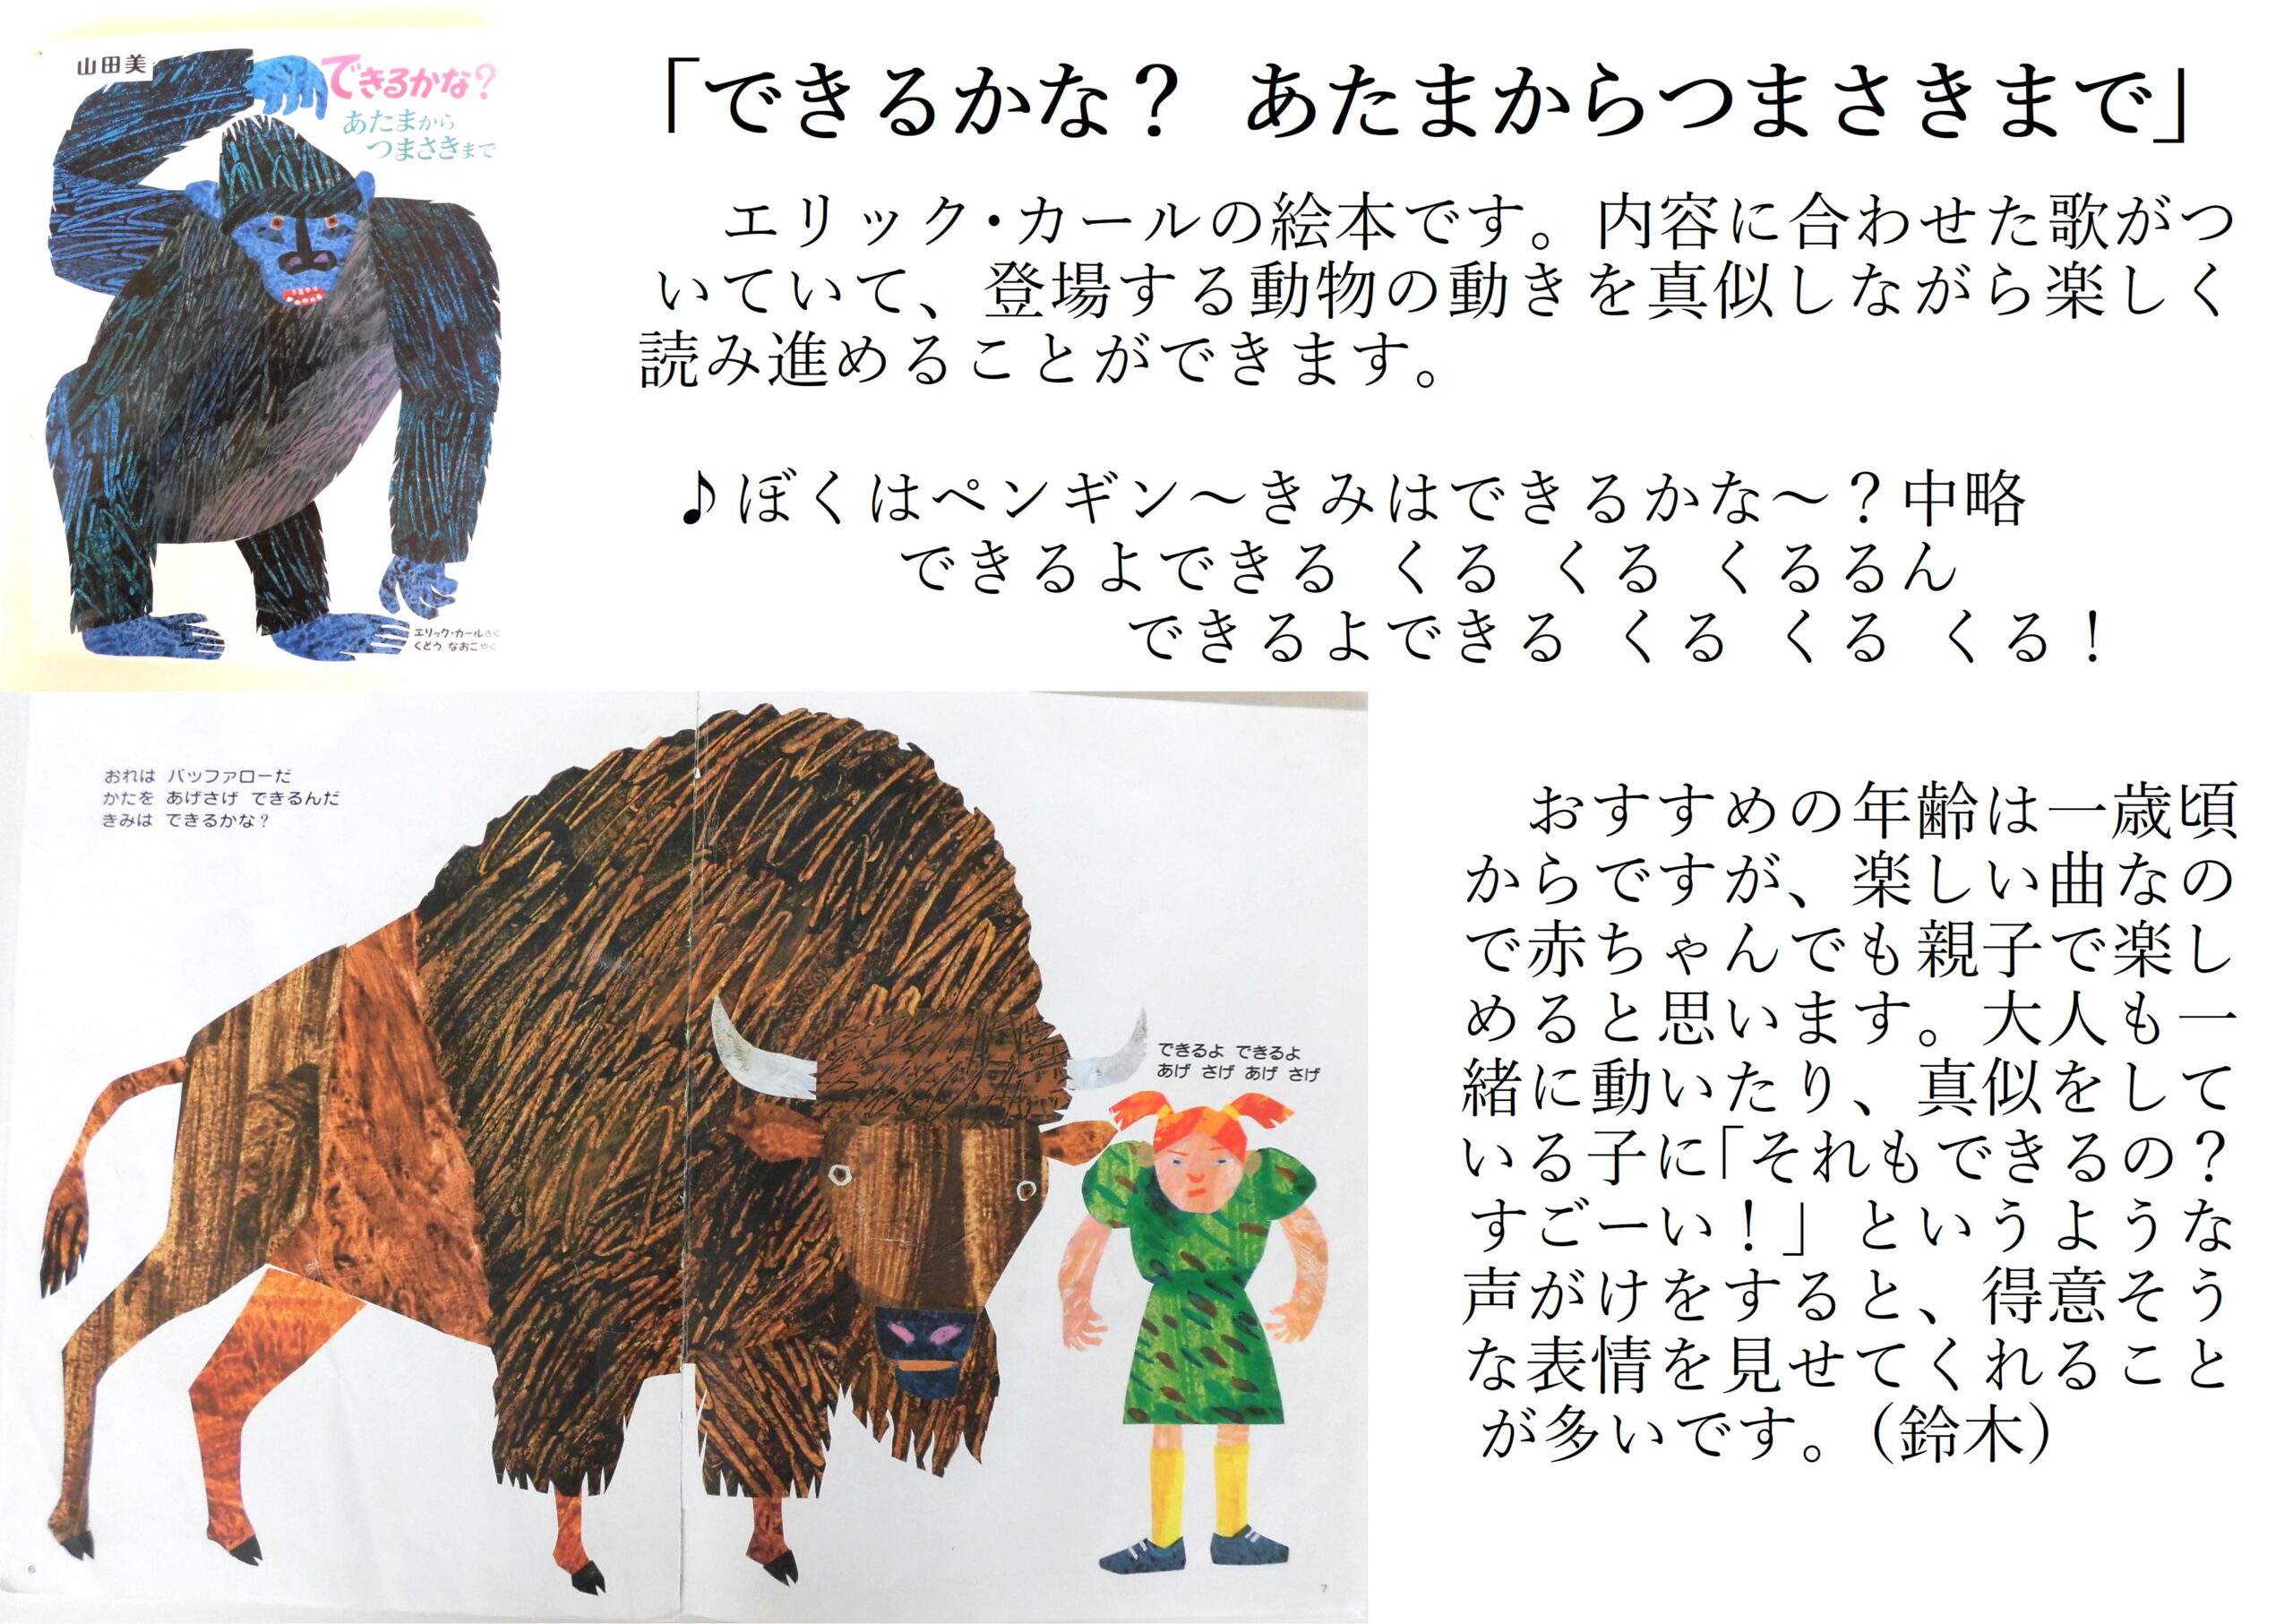 山田美
できるかな?
あたまから
つまさきまで
エリック・カールさく
くどう なおこやく
「できるかな？ あたまからつまさきまで」
エリック・カールの絵本です。内容に合わせた歌がつ
いていて、登場する動物の動きを真似しながら楽しく
読み進めることができます。
♪ぼくはペンギン～きみはできるかな～？中略
できるよできる くる くる くるるん
できるよできる くる くる くる！
おれは バッファローだ
かたを あげさげ できるんだ
きみは できるかな？
できるよ できるよ
あげ さげ あげ さげ
6
7
おすすめの年齢は一歳頃
からですが、楽しい曲なの
で赤ちゃんでも親子で楽し
めると思います。大人も一
緒に動いたり、真似をして
いる子に「それもできるの？
すごーい！」というような
声がけをすると、得意そう
な表情を見せてくれること
が多いです。（鈴木）